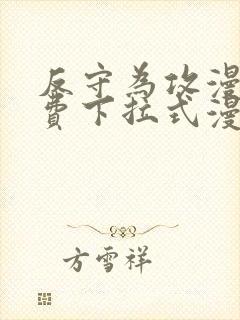 反守为攻漫
费下拉式漫
方雪祥